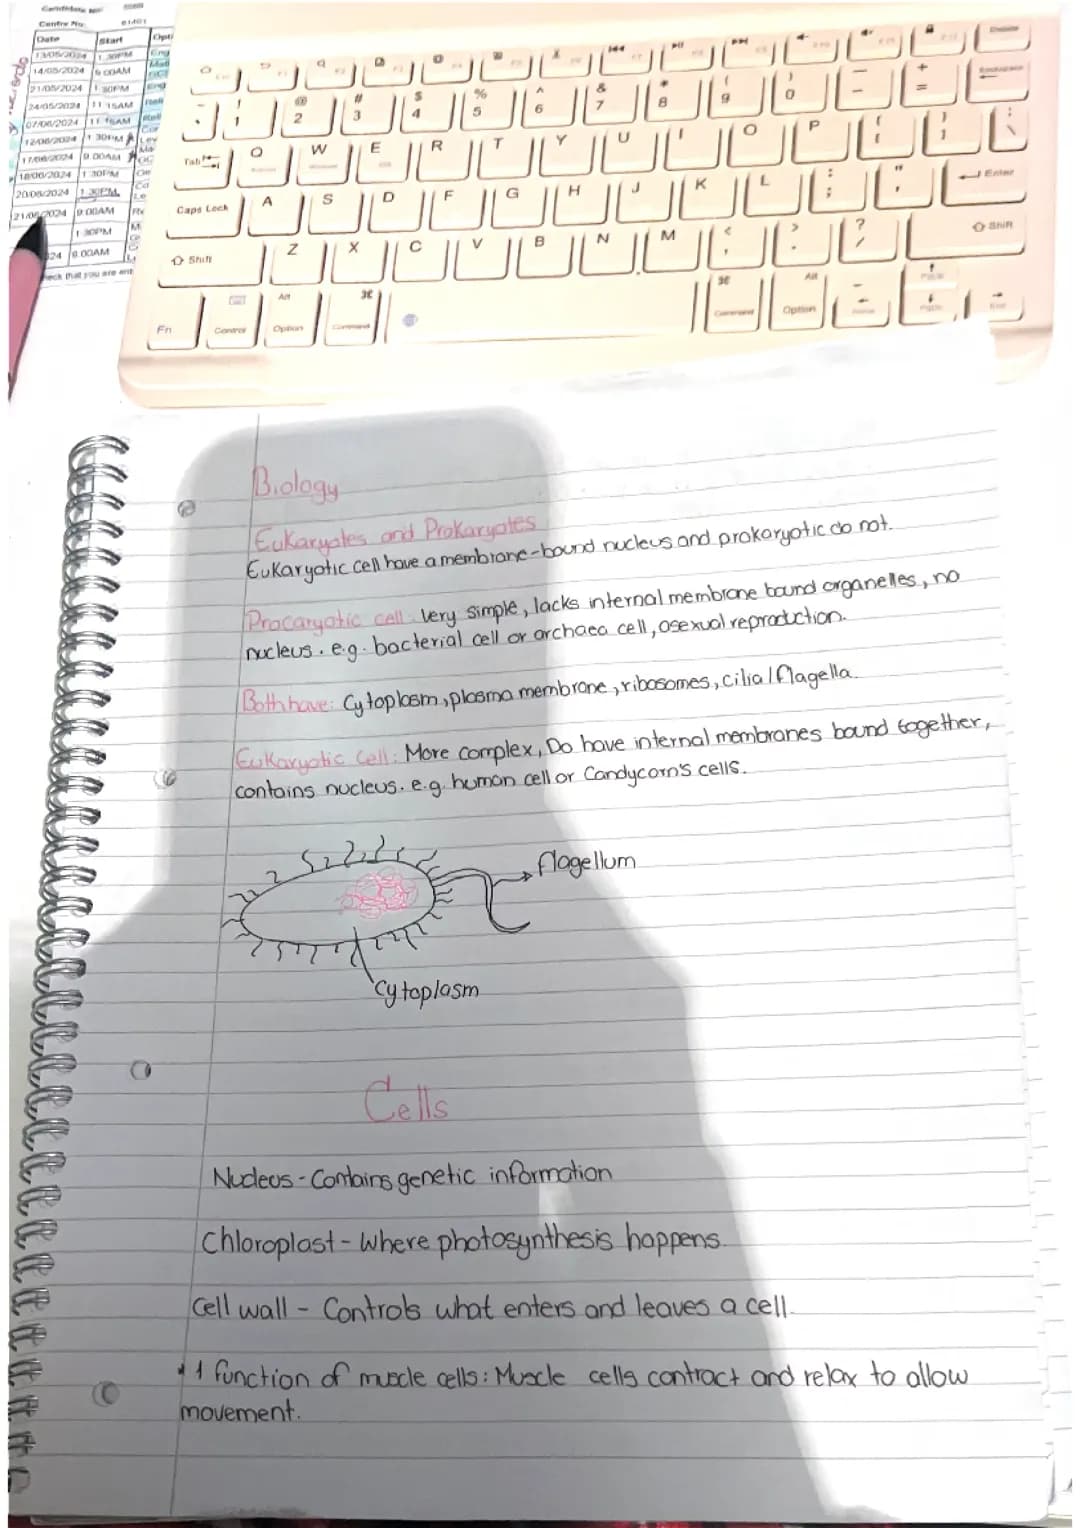 Candidate No:
Centre No: 61401
Date Start Opti
13/05/2024 1:30PM Eng
14/05/2024 9:00AM
21/05/2024 1:30PM Eng
24/05/2024 11:15AM Reli
07/06/2024 11:15AM
12/06/2024 1:30PM Lev
17/06/2024 9:00AM
18/06/2024 1:30PM
20/06/2024 1:30PM
21/06/2024 9:00AM
1:30PM
24 9:00AM
eck that you are ent
~ ! @ # $ % ^ & * ( ) — +
` 1 2 3 4 5 6 7 8 9 0 - = Backspace
Tab Q W E R T Y U I O P { [ } ] \
Caps Lock A S D F G H J K L : ; " ' Enter
Shift Z X C V B N M < , > . ? / Shift
Fn Control Alt Option ⌘ Command ⌘ Command Alt Option
Biology
Eukaryotes and Prokaryotes
Eukaryotic cell have a membrane-bound nucleus and prokaryotic do not.
Procaryotic cell: Very simple, lacks internal membrane bound organelles, no
nucleus. e.g. bacterial cell or archaea cell, asexual reproduction.
Both have: Cytoplasm, plasma membrane, ribosomes, cilia/flagella.
Eukaryotic Cell: More complex, Do have internal membranes bound together,
contains nucleus. e.g. human cell or Candycorn's cells.
flagellum
Cytoplasm
Cells
Nucleus - Contains genetic information
Chloroplast - Where photosynthesis happens.
Cell wall - Controls what enters and leaves a cell.
* 1 function of muscle cells: Muscle cells contract and relax to allow
movement.